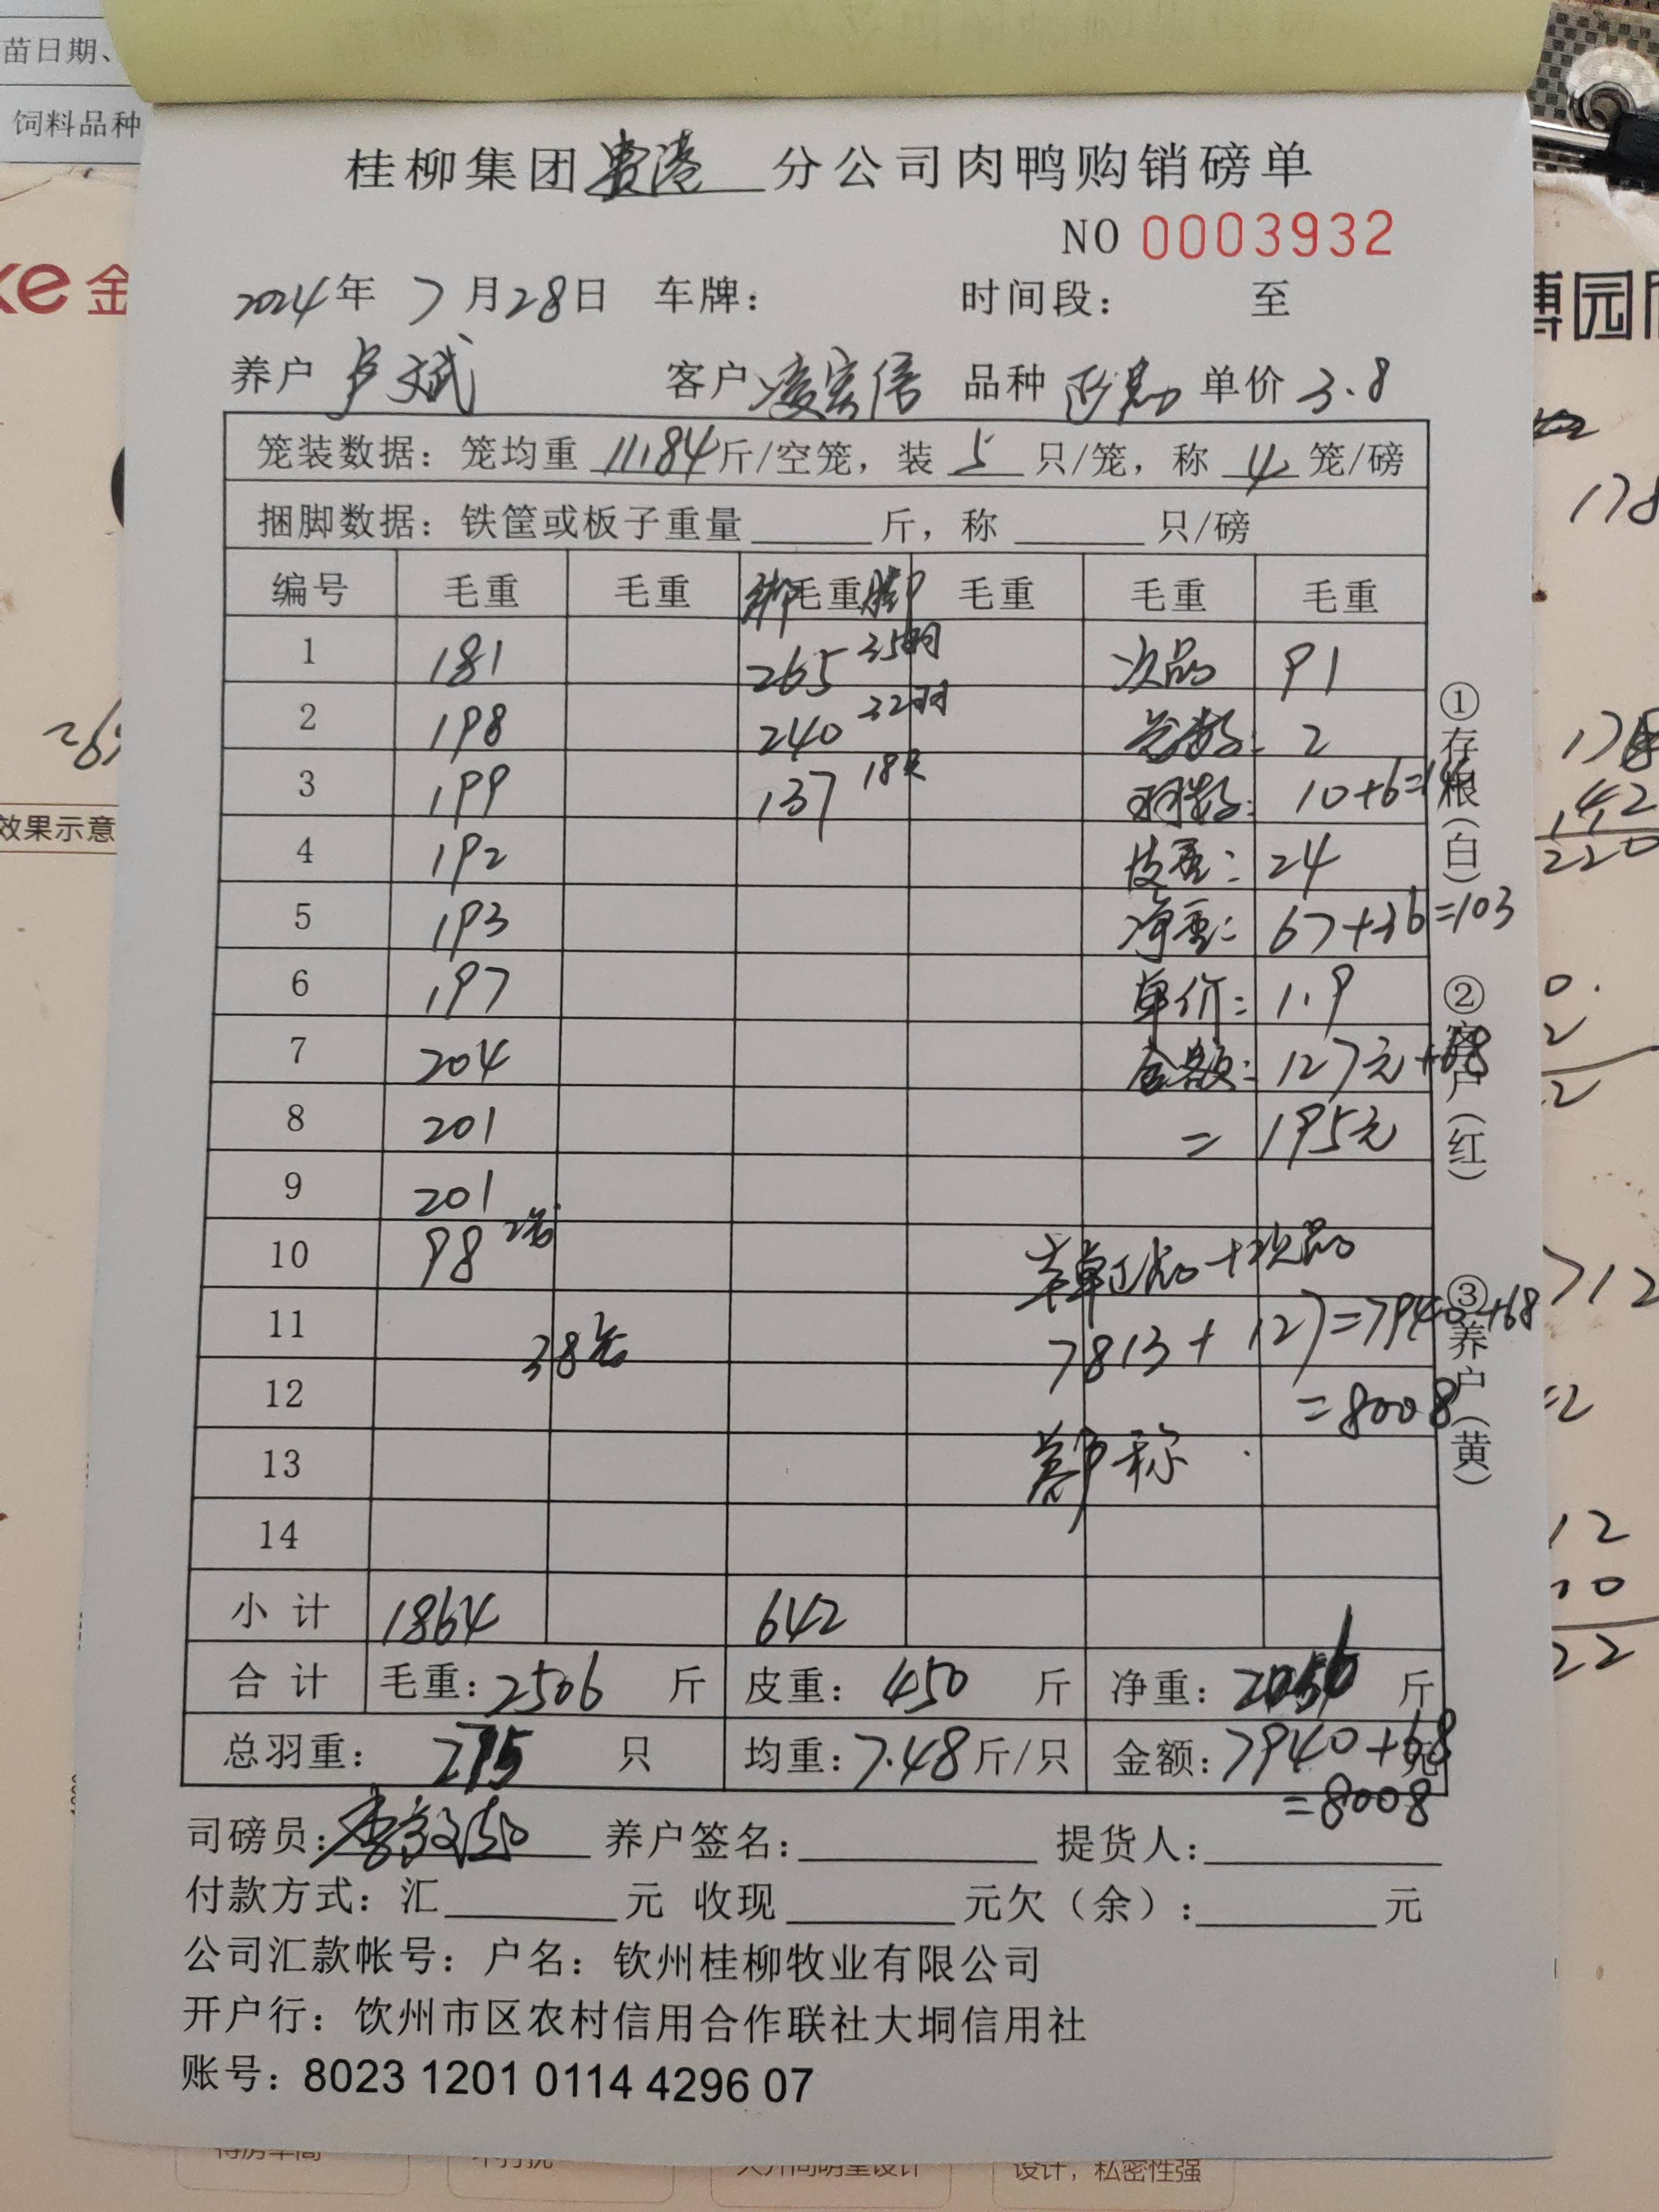 苗日期、
饲料品种
桂柳集团贵港分公司肉鸭购销磅单
NO 0003932
2024年7月28日 车牌: 时间段: 至
养户 卢文斌 客户 凌宏信 品种 单价 3.8
笼装数据: 笼均重 11.84斤/空笼, 装 5 只/笼, 称 4 笼/磅
捆脚数据: 铁筐或板子重量 斤, 称 只/磅
编号 毛重 毛重 绑毛重脚 毛重 毛重 毛重
1 181 265 35羽 次品 91
2 198 240 32羽 笼数: 2
3 199 137 18只 羽数: 10+6=16
4 192 皮重: 24
5 193 净重: 67+36=103
6 197 单价: 1.9
7 204 金额: 127元+68
8 201 = 195元
9 201
10 98 2笼 本单正品+次品
11 38笼 7813+127=7940+68
12 =8008
13 称
14
小计 1864 642
合计 毛重: 2506 斤 皮重: 450 斤 净重: 2056 斤
总羽重: 275 只 均重: 7.48斤/只 金额: 7940+68元
=8008
司磅员: 养户签名: 提货人:
付款方式: 汇 元 收现 元欠(余): 元
公司汇款帐号: 户名: 钦州桂柳牧业有限公司
开户行: 饮州市区农村信用合作联社大垌信用社
账号: 8023 1201 0114 4296 07
①存根(白)
②客户(红)
③养户(黄)
xe 金
博园
效果示意
178
142
220
712
12
22
设计，私密性强